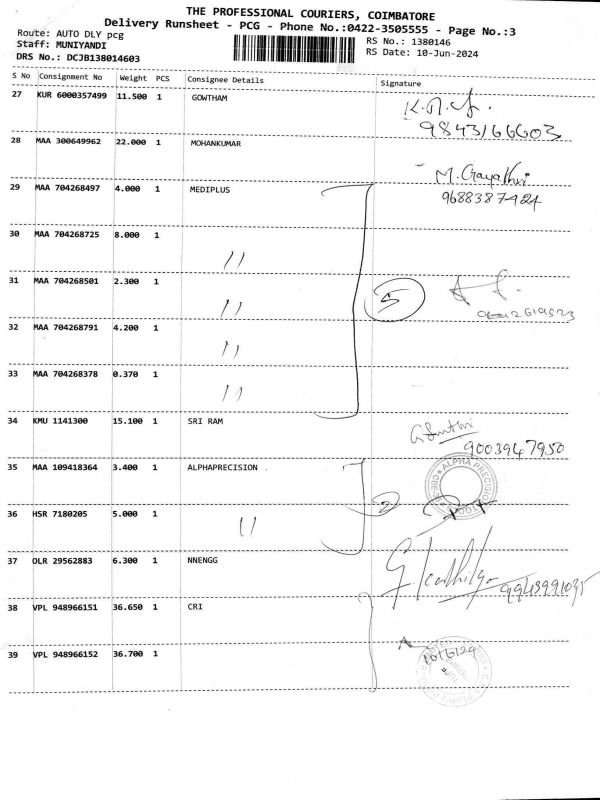 THE PROFESSIONAL COURIERS, COIMBATORE
Delivery Runsheet - PCG - Phone No.:0422-3505555 - Page No.:3
Route: AUTO DLY pcg
RS No.: 1380146
Staff: MUNIYANDI
RS Date: 10-Jun-2024
DRS No.: DCJB138014603
S No Consignment No Weight PCS Consignee Details Signature
27 KUR 6000357499 11.500 1 GOWTHAM
9843166603
28 MAA 300649962 22.000 1 MOHANKUMAR
M. Gayathri
9688387424
29 MAA 704268497 4.000 1 MEDIPLUS
30 MAA 704268725 8.000 1 11
31 MAA 704268501 2.300 1 11
5
32 MAA 704268791 4.200 1 11
33 MAA 704268378 0.370 1 11
34 KMU 1141300 15.100 1 SRI RAM
9003947950
35 MAA 109418364 3.400 1 ALPHAPRECISION
ALPHA PRECISION
2
36 HSR 7180205 5.000 1 11
37 OLR 29562883 6.300 1 NNENGG
38 VPL 948966151 36.650 1 CRI
39 VPL 948966152 36.700 1
10/6/24